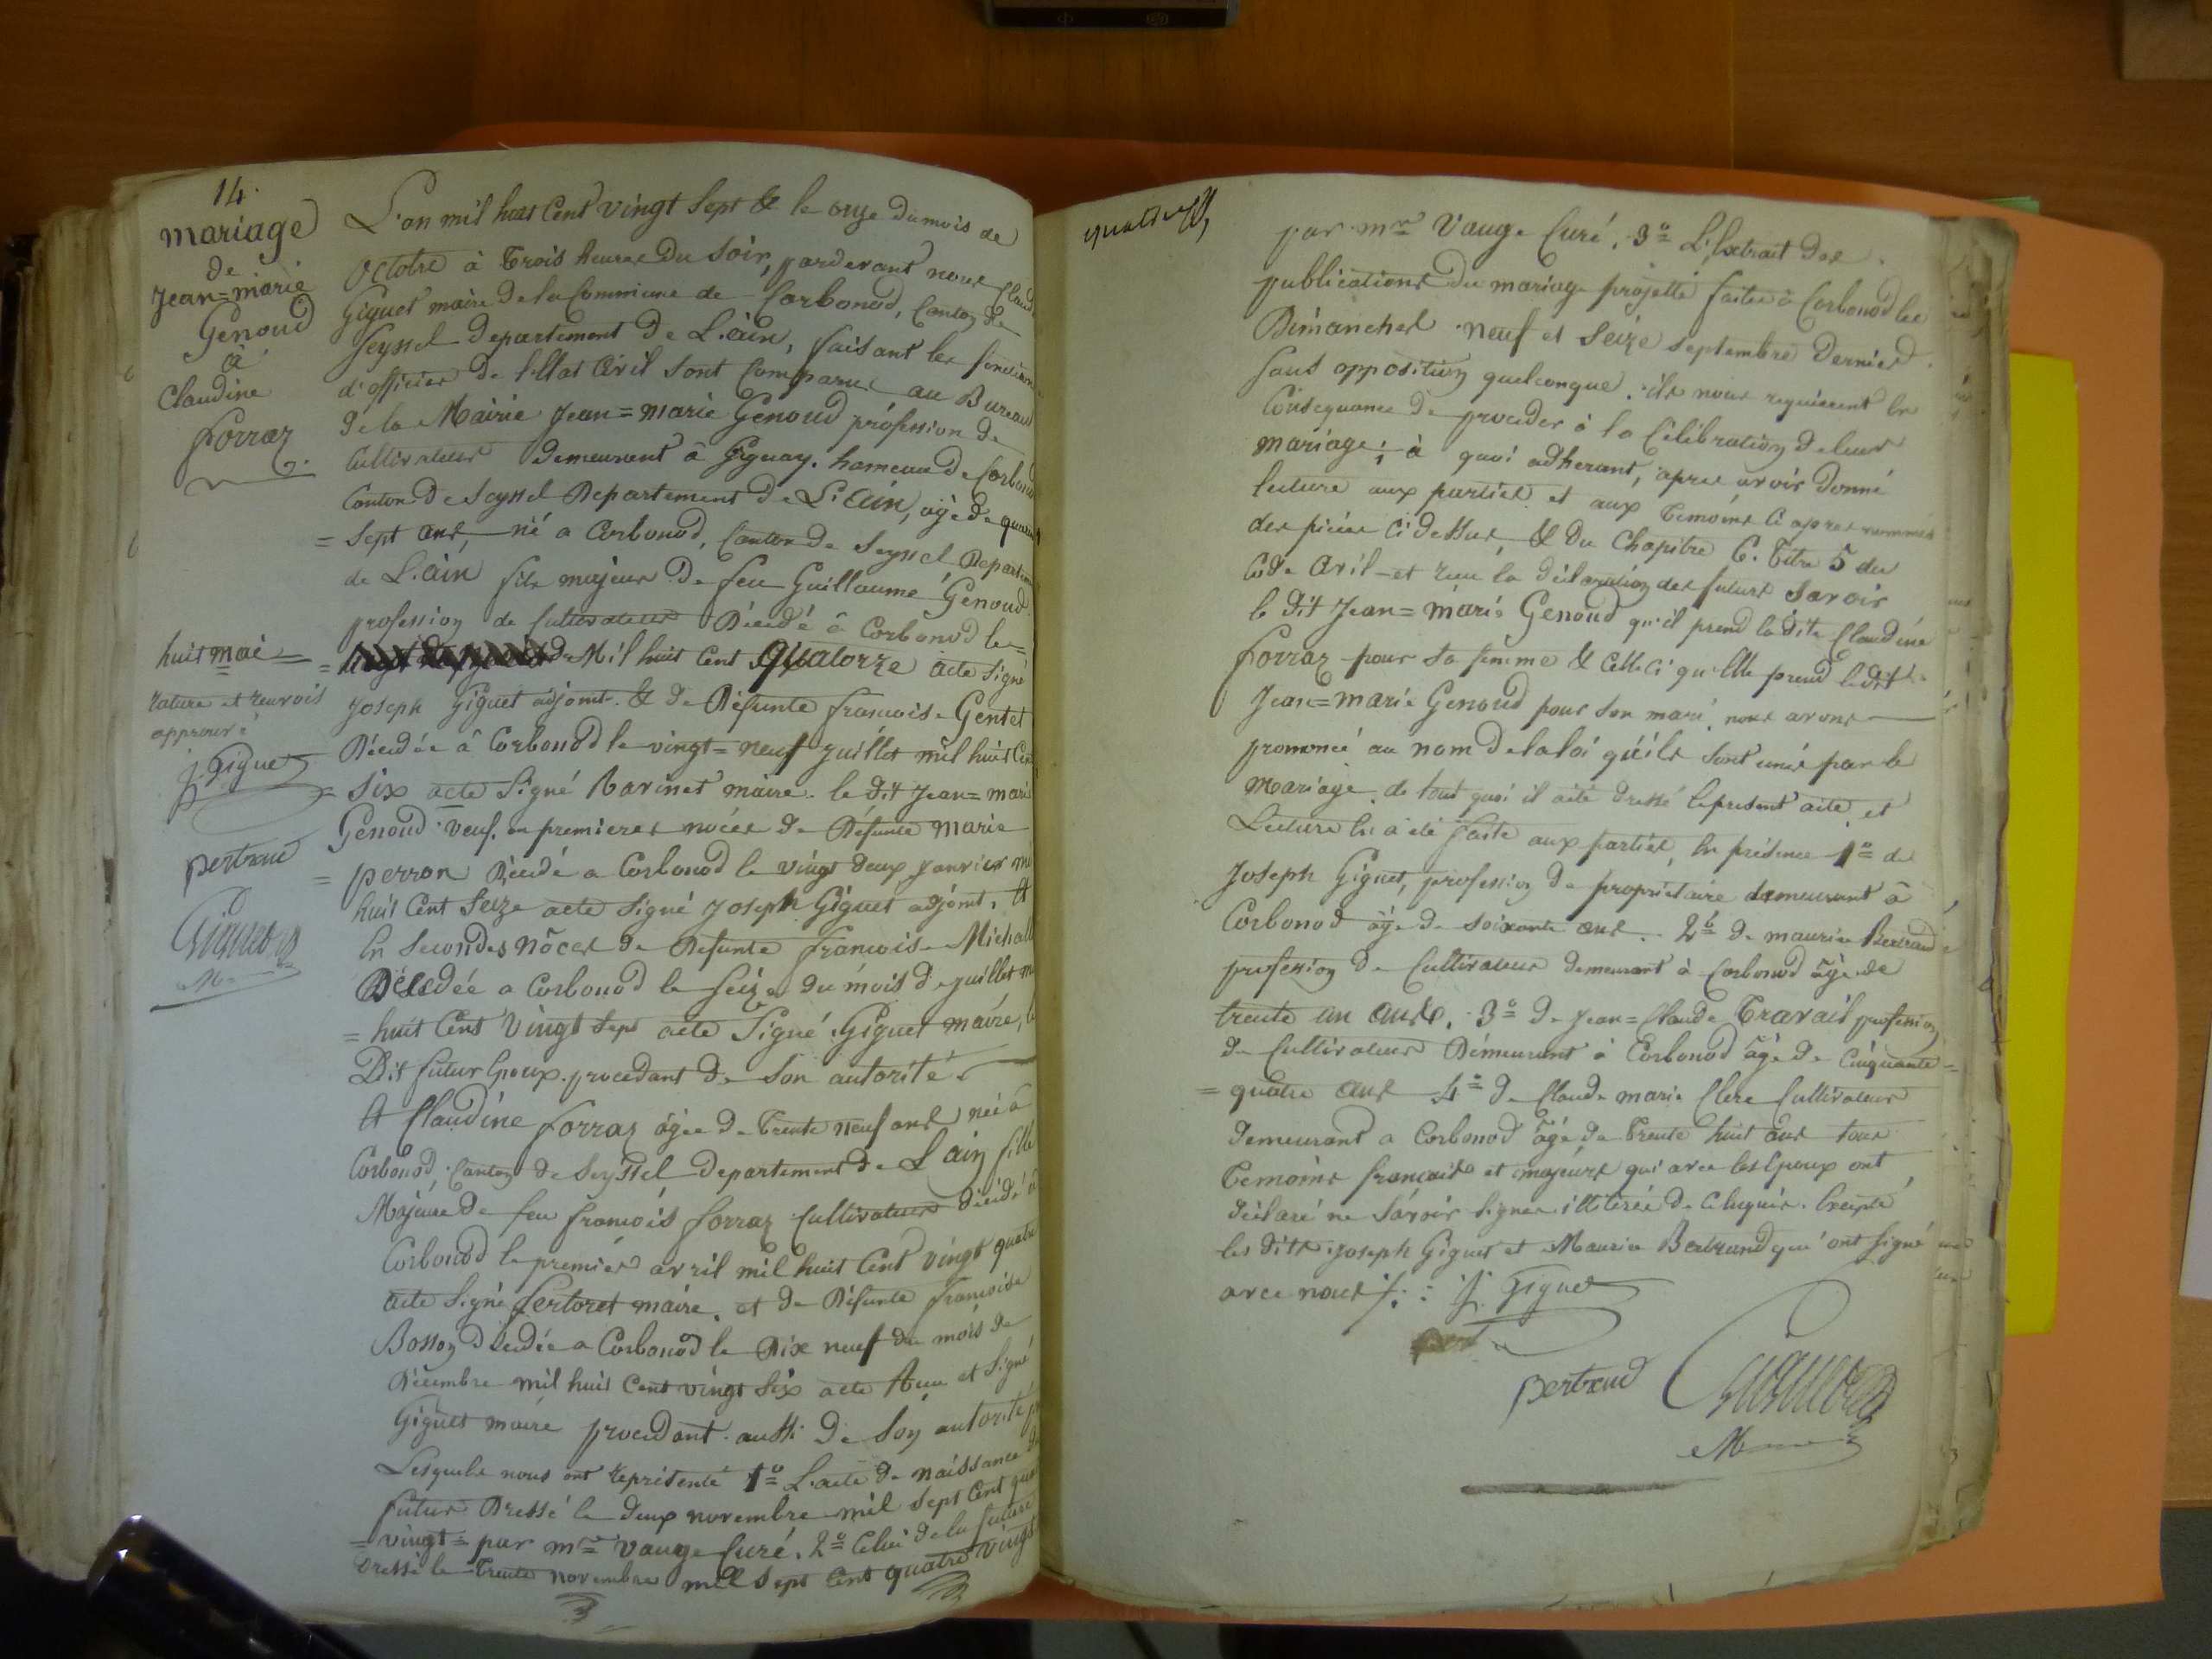 14.
mariage
de
Jean=marie
Genoud
à
Claudine
forraz
huit mai
rature et renvois
approuvé
J. Giguet
Bertrand
Giguet
M
L'an mil huit Cent vingt Sept & le onze du mois de
Octobre à trois heures du Soir, pardevant nous Claude
Giguet maire de la Commune de Corbonod, Canton de
Seyssel departement de L'ain, faisant les fonctions
d'officier de l'Etat Civil sont Comparus au Bureau
de la Mairie Jean=marie Genoud profession de
Cultivateur demeurant à Gignay. hameau de Corbonod
Canton de Seyssel Departement de L'ain, âgé de quarante
= Sept ans, né a Corbonod, Canton de Seyssel Departement
de L'ain fils majeur de feu Guillaume Genoud
profession de Cultivateur Décédé à Corbonod le=
= Mil huit Cent Quatorze acte Signé
Joseph Giguet adjoint & de Défunte francoise Gentet
Décédée à Corbonod le vingt=neuf juillet mil huit Cent
= Six acte Signé Ravinet maire. le dit Jean=marie
Genoud veuf en premieres noces de Défunte Marie
= perron Décédé a Corbonod le vingt deux janvier mil
huit Cent Seize acte Signé Joseph Giguet adjoint, Et
En Secondes nôces de Défunte francoise Michall
Décédée a Corbonod le Seize du mois de juillet mil
= huit Cent Vingt Sept acte Signé Giguet maire, le
Dit futur Epoux procedant de Son autorité.
Et Claudine forraz âgée de trente neuf ans née à
Corbonod, Canton de Seyssel departement de L'ain fille
Majeure de feu francois forraz Cultivateur décédé à
Corbonod le premier avril mil huit Cent vingt quatre
acte Signé fertoret maire, et de Défunte francoise
Bosson Décédée a Corbonod le Dix neuf du mois de
Décembre mil huit Cent vingt Six acte et Signé
Giguet maire procedant aussi de Son autorité
Lesquels nous ont représenté 1º L'acte de naissance du
futur Dressé le deux novembre mil Sept Cent quatre
= vingt= par mre vauge Curé. 2º Celui de la future
dressé le trente novembre mil Sept Cent quatre vingt
par mre Vauge Curé, 3º L'Extrait des
publications du mariage projetté faites à Corbonod les
Dimanches neuf et Seize Septembre Dernier
Sans opposition quelconque. ils nous requierent En
Consequance de proceder à la Célébration de leur
mariage; à quoi adherant, apres avoir donné
lecture aux parties et aux témoins Ci apres nommés
des pieces Ci dessus, & du Chapitre 6. titre 5 du
Code Civil et reçu la déclaration des futurs Savoir
le dit Jean=marie Genoud qu'il prend la dite Claudine
forraz pour Sa femme & Celle Ci qu'Elle prend le dit
Jean=marie Genoud pour Son mari. nous avons
prononcé au nom de la loi qu'ils Sont unis par le
Mariage. de tout quoi il a été dressé le present acte, et
Lecture En a été faite aux parties, En présence 1º de
Joseph Giguet, profession de propriétaire demeurant à
Corbonod âgé de Soixante ans. 2º de maurice Bertrand
profession de Cultivateur demeurant à Corbonod âgé de
trente un ans. 3º de Jean=Claude Travail profession
de Cultivateur Demeurant à Corbonod âgé de Cinquante=
= quatre ans 4º de Claude marie Clerc Cultivateur
demeurant a Corbonod âgé de trente huit ans tous
temoins français et majeurs qui avec les Epoux ont
déclaré ne Savoir Signer illiterés de Ce Enquis. Excepté
les dits Joseph Giguet et Maurice Bertrand qui ont Signé
avec nous J. Giguet
Bertrand
Giguet
M